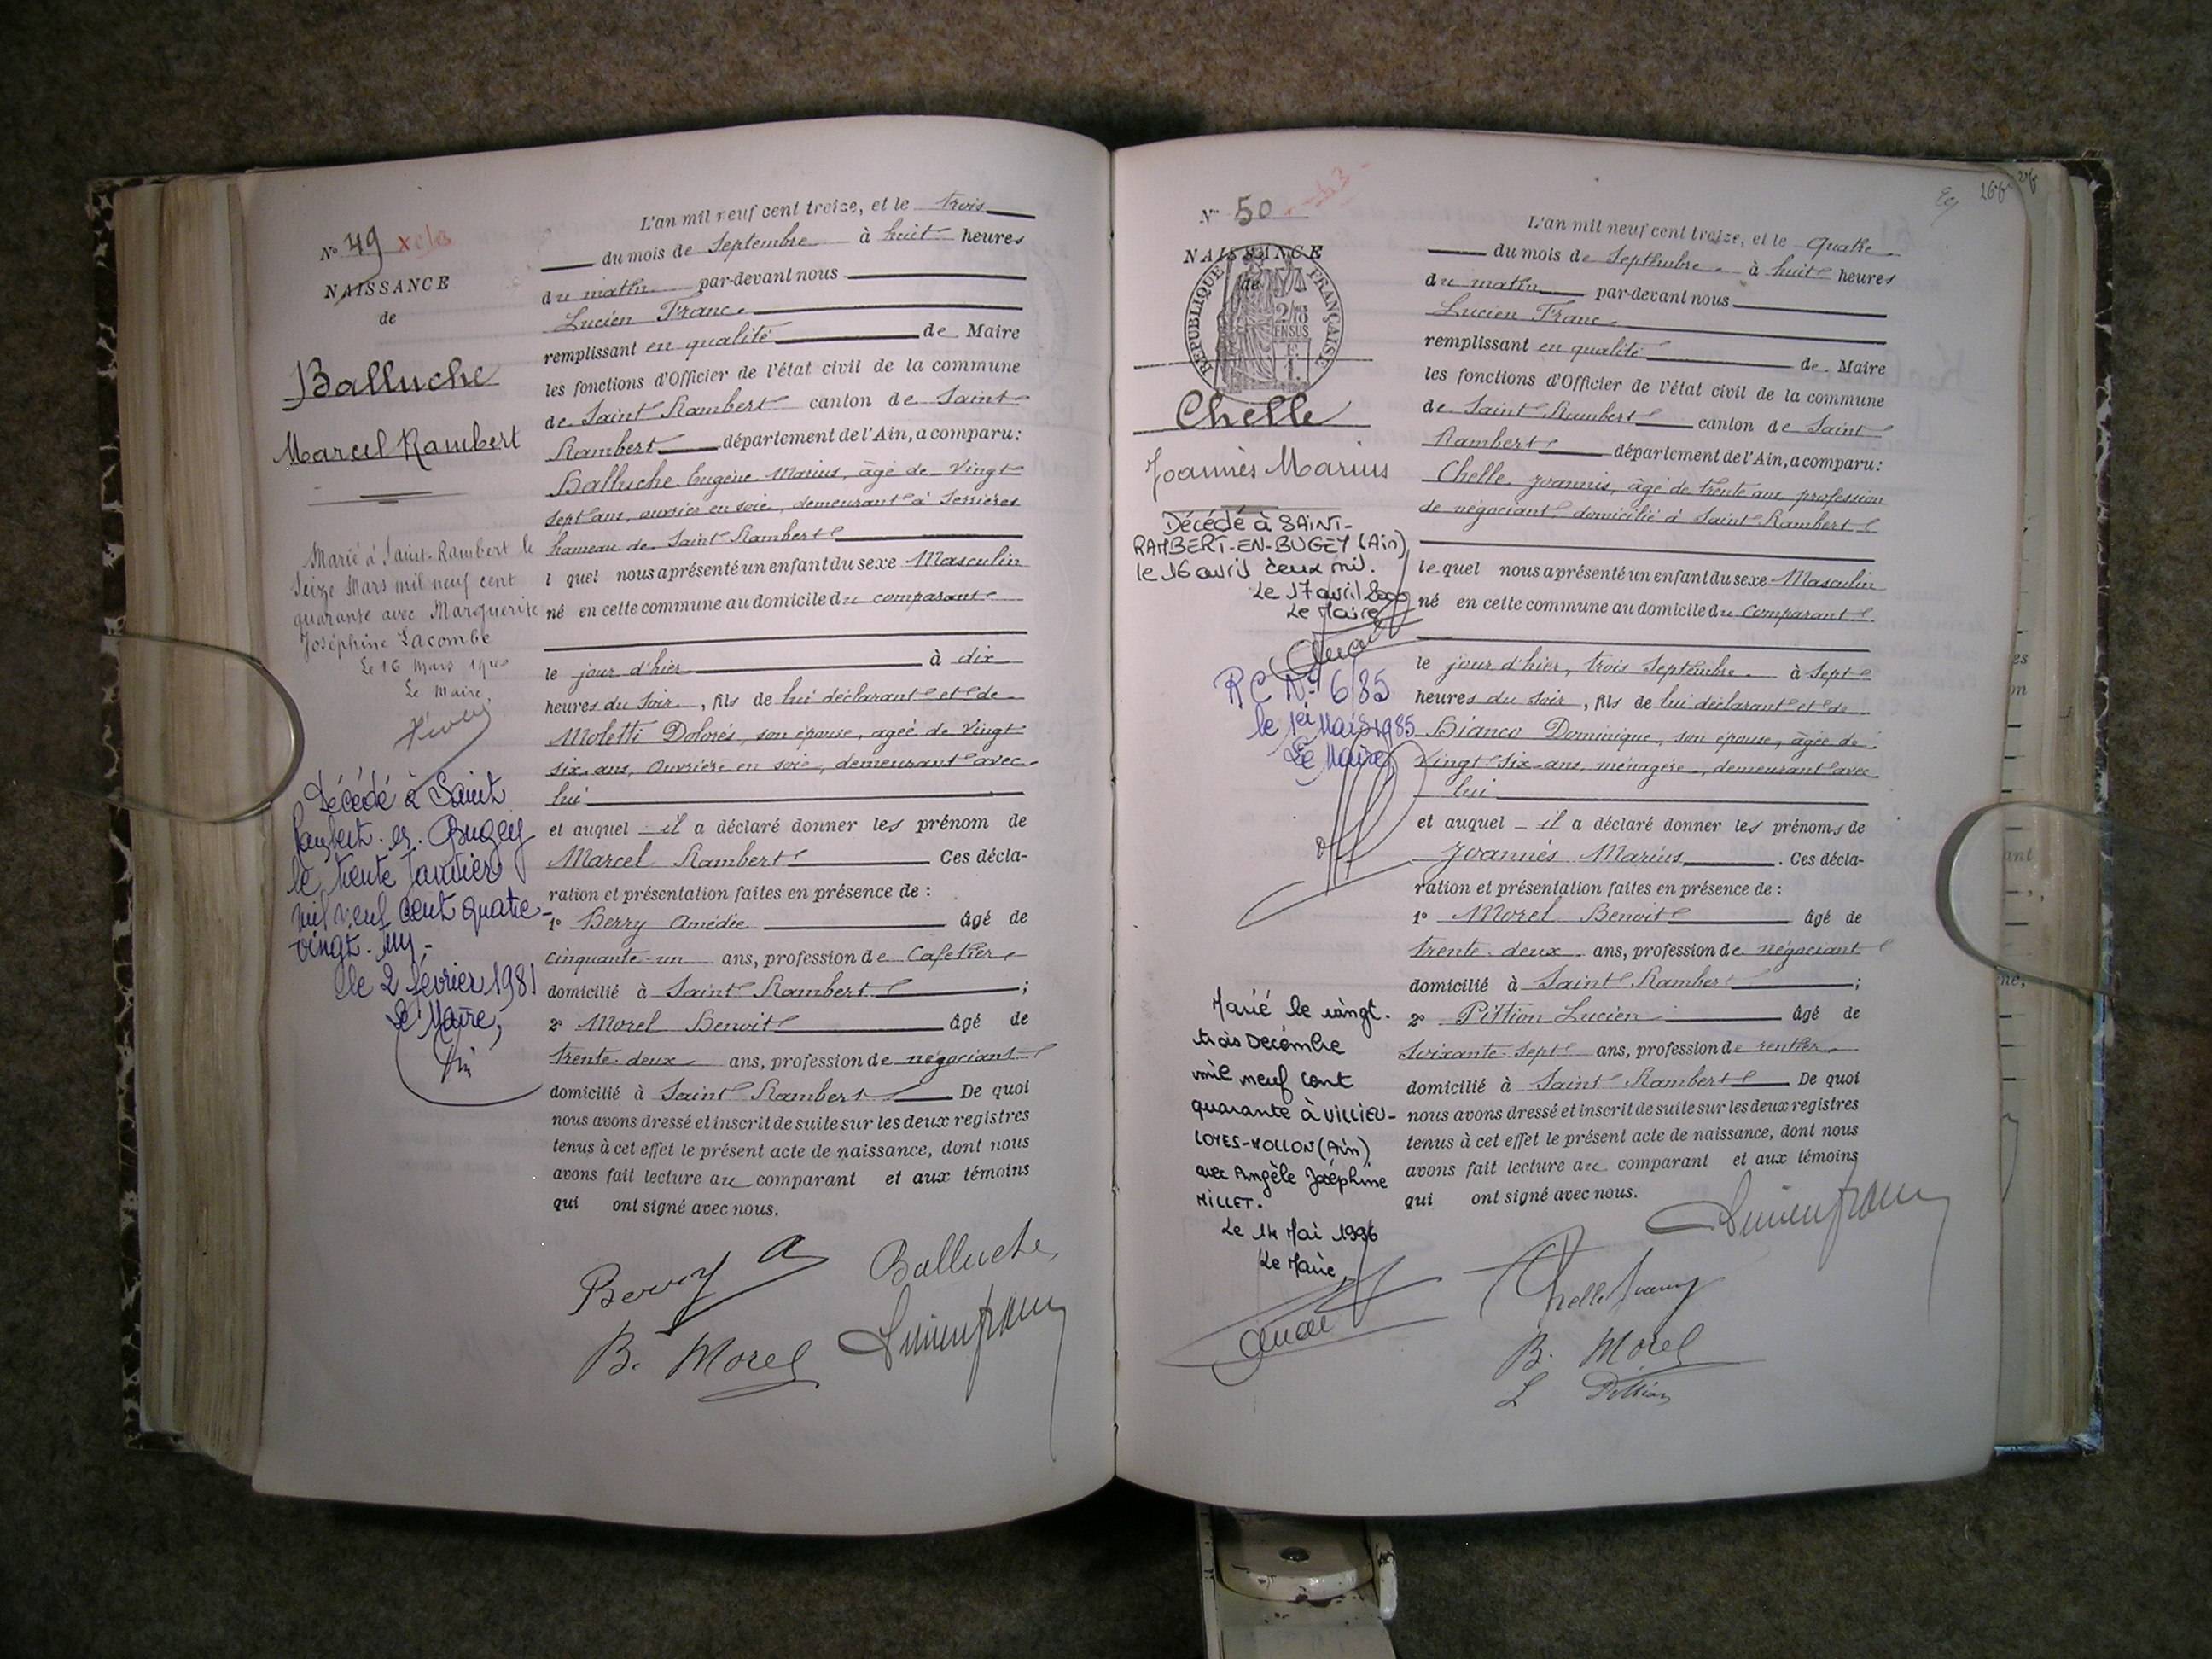 N° 49
NAISSANCE
de
Balluche
Marcel Rambert
Marié à Saint-Rambert le
Seize Mars mil neuf cent
quarante avec Marguerite
Joséphine Lacombe
Le 16 Mars 1940
Le Maire,
Décédé à Saint
Rambert-en-Bugey
le trente Janvier
mil neuf cent quatre-
vingt-un,-
le 2 février 1981
Le Maire,
L'an mil neuf cent treize, et le trois
du mois de Septembre à huit heures
du matin par-devant nous
Lucien Franc
remplissant en qualité de Maire
les fonctions d'Officier de l'état civil de la commune
de Saint Rambert canton de Saint
Rambert département de l'Ain, a comparu:
Balluche Eugène Marius, âgé de Vingt
sept ans, ouvrier en soie, demeurant à Serrières
hameau de Saint Rambert
l quel nous a présenté un enfant du sexe Masculin
né en cette commune au domicile du comparant
le jour d'hier à dix
heures du soir, fils de lui déclarant et de
Moletti Dolorès, son épouse, agée de Vingt
six ans, Ouvrière en soie, demeurant avec
lui
et auquel il a déclaré donner les prénom de
Marcel Rambert Ces décla-
ration et présentation faites en présence de :
1° Berry Amédée âgé de
cinquante-un ans, profession de Cafetier
domicilié à Saint Rambert ;
2° Morel Benoit âgé de
trente-deux ans, profession de négociant
domicilié à Saint Rambert De quoi
nous avons dressé et inscrit de suite sur les deux registres
tenus à cet effet le présent acte de naissance, dont nous
avons fait lecture au comparant et aux témoins
qui ont signé avec nous.
Berry A Balluche
B. Morel Lucien franc
N° 50
NAISSANCE
de
RÉPUBLIQUE FRANÇAISE
Chelle
Joannès Marius
Décédé à SAINT-
RAMBERT-EN-BUGEY (Ain)
le 16 avril deux mil.
Le 17 avril 2000
Le Maire
RC N° 6/85
le 1er Mars 1985
Le Maire
Marié le vingt-
trois Décembre
mil neuf cent
quarante à VILLIEU-
LOYES-MOLLON (Ain)
avec Angèle Joséphine
MILLET.
Le 14 Mai 1996
Le Maire
L'an mil neuf cent treize, et le Quatre
du mois de Septembre à huit heures
du matin par-devant nous
Lucien Franc
remplissant en qualité de Maire
les fonctions d'Officier de l'état civil de la commune
de Saint Rambert canton de Saint
Rambert département de l'Ain, a comparu:
Chelle Joannis, âgé de trente ans profession
de négociant domicilié à Saint Rambert
le quel nous a présenté un enfant du sexe Masculin
né en cette commune au domicile du Comparant
le jour d'hier, trois Septembre à Sept
heures du soir, fils de lui déclarant et de
Bianco Dominique, son épouse, âgée de
Vingt six ans, ménagère, demeurant avec
lui
et auquel il a déclaré donner les prénoms de
Joannès Marius. Ces décla-
ration et présentation faites en présence de :
1° Morel Benoit âgé de
trente-deux ans, profession de négociant
domicilié à Saint Rambert ;
2° Pittion Lucien âgé de
Soixante-Sept ans, profession de rentier
domicilié à Saint Rambert De quoi
nous avons dressé et inscrit de suite sur les deux registres
tenus à cet effet le présent acte de naissance, dont nous
avons fait lecture au comparant et aux témoins
qui ont signé avec nous.
Lucien franc
Chelle
B. Morel
L Pittion